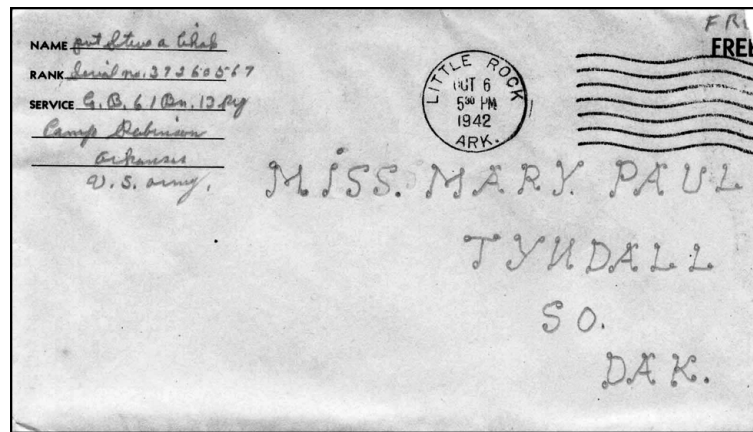 NAME Pvt Steve a Chab
RANK Serial no. 37260567
SERVICE G. B. 61 Bn.
Camp Robinson
Arkansas
U.S. army.
FREE
LITTLE ROCK
OCT 6
5 30 PM
1942
ARK.
MISS. MARY. PAUL
TYNDALL
SO.
DAK.